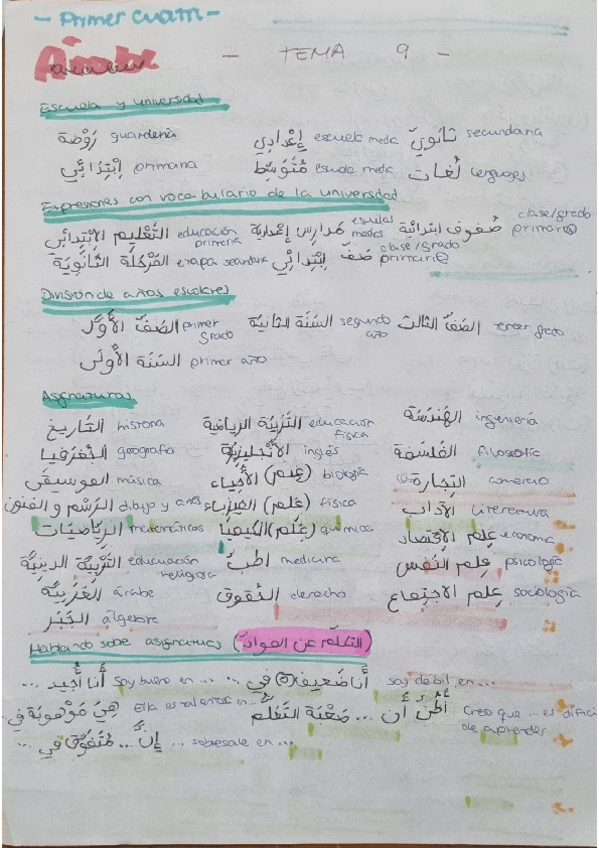 - Primer cuatri -
Árabe - TEMA 9 -
Escuela y universidad
رَوْضة guardería إِعْدادِي escuela media ثانَوِيّ secundaria
اِبْتِدائِي primaria مُتَوَسِّط escuela media لُغات lenguajes
Expresiones con vocabulario de la universidad
التَّعْليم الاِبْتِدائِي educación primaria مَدارِس إعْدادية escuelas medias صُفوف ابتدائية clase/grado primario
المَرْحَلة الثّانَوِيّة etapa secundaria صَفّ اِبْتِدائِي clase/grado primario
División de años escolares
الصَّفّ الأَوَّل primer grado السَّنَة الثانية segundo año الصَّفّ الثالث tercer grado
السَّنَة الأولى primer año
Asignaturas
التاريخ historia التَّرْبِيَّة الرياضية educación física الهَنْدَسَة ingeniería
الجُغْرَفيا geografía الأَنْجليزِيّة inglés الفَلْسَفة filosofía
الموسيقى música (عِلم) الأَحْياء biología التِّجارة comercio
الرَّسْم و الفنون dibujo y artes (عِلم) الفيزياء física الآداب literatura
الرياضيّات matemáticas (عِلْم) الكيمياء química عِلم الاقتصاد economía
التَّرْبِيّة الدينِيّة educación religiosa الطبّ medicina عِلم النَّفْس psicología
العَرَبِيّة árabe الحُقوق derecho عِلم الاجتِماع sociología
الجَبْر álgebra
Hablando sobre asignaturas (التَّكَلُّم عن المَوادّ)
أنا أُجيد ... soy bueno en ... أنا ضَعيف(ة) في ... soy débil en ...
هِيَ مَوْهوبة في ... Ella es talentosa en ... أَظُنّ أَن ... صَعْبَة التَّعَلُّم Creo que ... es difícil de aprender
إنَّ ... مُتَفَوِّق في ... ... sobresale en ...